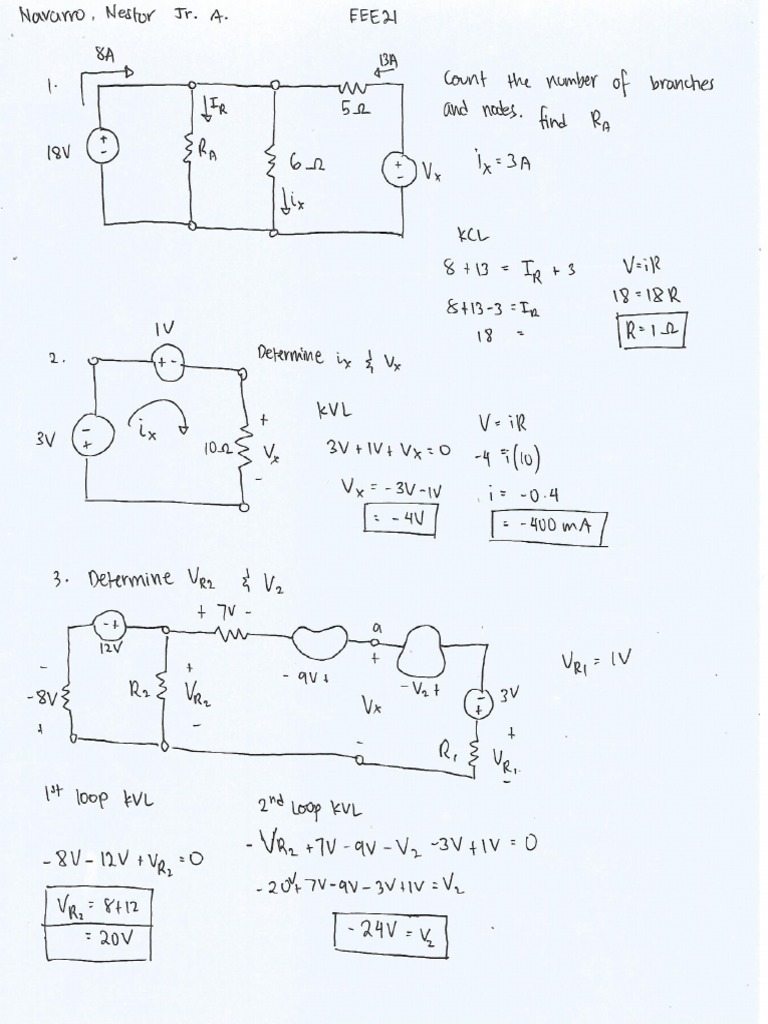 Navarro, Nestor Jr. A. EEE21
8A
13A
1.
IR
5Ω
Count the number of branches
and nodes. find RA
18V
+
-
RA
6Ω
+
-
Vx
ix = 3A
ix
KCL
8 + 13 = IR + 3
V=iR
8+13-3 = IR
18 = 18R
18 =
R = 1Ω
1V
2.
+ -
Determine ix & Vx
3V
-
+
ix
10Ω
+
Vx
-
KVL
V = iR
3V + 1V + Vx = 0
-4 = i(10)
Vx = -3V-1V
i = -0.4
= -4V
= -400 mA
3. Determine VR2 & V2
+ 7V -
- +
12V
a
+
VR1 = 1V
-
-8V
+
R2
+
VR2
-
- 9V +
Vx
- V2 +
-
+
3V
-
R1
+
VR1
-
1st loop KVL
2nd Loop KVL
-8V-12V+VR2=0
-VR2 +7V -9V -V2 -3V+1V = 0
-20V+7V-9V-3V+1V = V2
VR2 = 8+12
= 20V
-24V = V2